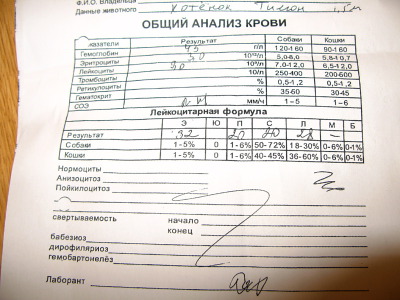 Ф.И.О. Владельца
Данные животного Котёнок Тимон
ОБЩИЙ АНАЛИЗ КРОВИ
Показатели Результат Собаки Кошки
Гемоглобин г/л 120-160 90-160
Эритроциты 10¹²/л 5,0-8,0 5,8-10,7
Лейкоциты 10⁹/л 7,0-12,0 6,5-12,0
Тромбоциты 10/л 250-400 200-600
Ретикулоциты % 0,5-1,2 0,5-1,2
Гематокрит % 35-60 30-45
СОЭ мм/ч 1-5 1-6
Лейкоцитарная формула
Э Ю П С Л М Б
Результат 32 20 20 28 –
Собаки 1-5% 0 1-6% 50-72% 18-30% 0-6% 0-1%
Кошки 1-5% 0 1-6% 40-45% 36-60% 0-6% 0-1%
Нормоциты
Анизоцитоз
Пойкилоцитоз
свертываемость начало
конец
бабезиоз
дирофиляриоз
гемобартонелёз
Лаборант